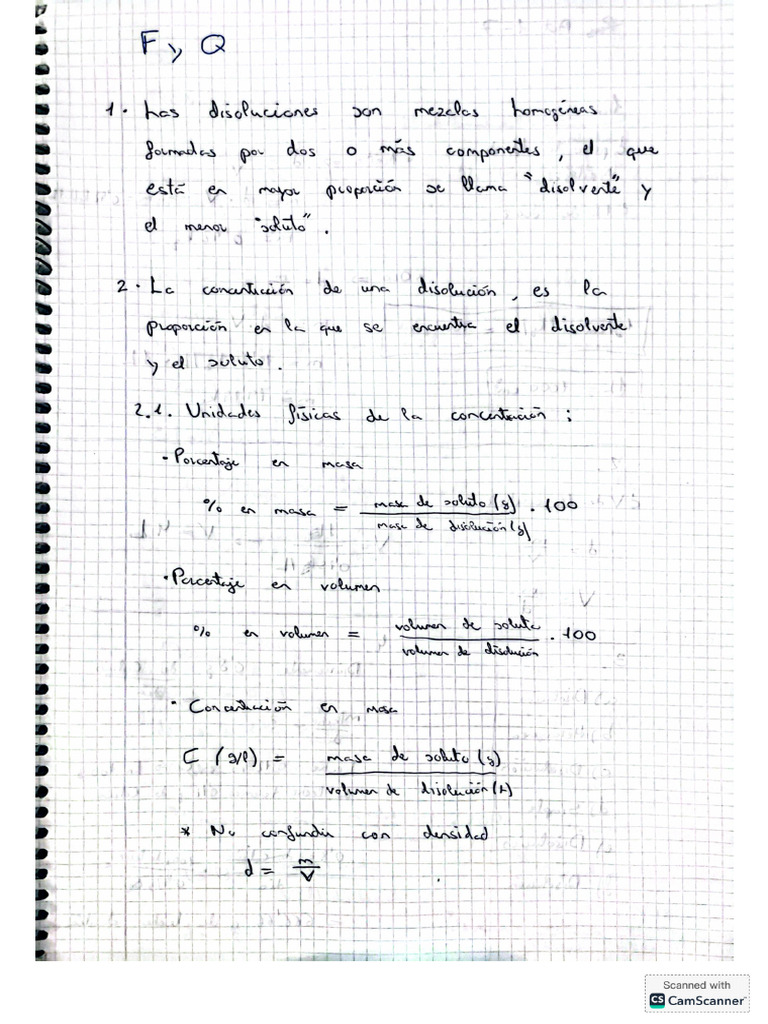 F y Q
1. Las disoluciones son mezclas homogéneas
formadas por dos o más componentes, el que
está en mayor proporción se llama "disolvente" y
el menor "soluto".
2. La concentración de una disolución, es la
proporción en la que se encuentra el disolvente
y el soluto.
2.1. Unidades físicas de la concentración:
· Porcentaje en masa
% en masa = masa de soluto (g) / masa de disolución (g) · 100
· Porcentaje en volumen
% en volumen = volumen de soluto / volumen de disolución · 100
· Concentración en masa
C (g/l) = masa de soluto (g) / volumen de disolución (L)
* No confundir con densidad
d = m / V
Scanned with
CS CamScanner